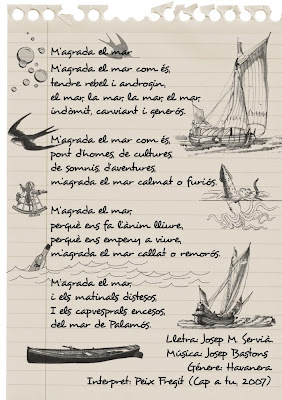 M'agrada el mar
M'agrada el mar com és,
tendre rebel i androgin,
el mar, la mar, la mar, el mar,
indòmit, canviant i generós.
M'agrada el mar com és,
pont d'homes, de cultures,
de somnis, d'aventures,
m'agrada el mar calmat o furiós.
M'agrada el mar,
perquè ens fa l'ànim lliure,
perquè ens empeny a viure,
m'agrada el mar callat o remorós.
M'agrada el mar,
i els matinals distesos,
I els capvesprals encesos,
del mar de Palamós.
Lletra: Josep M. Servià
Música: Josep Bastons
Génere: Havanera
Interpret: Peix Fregit (Cap a tu, 2007)